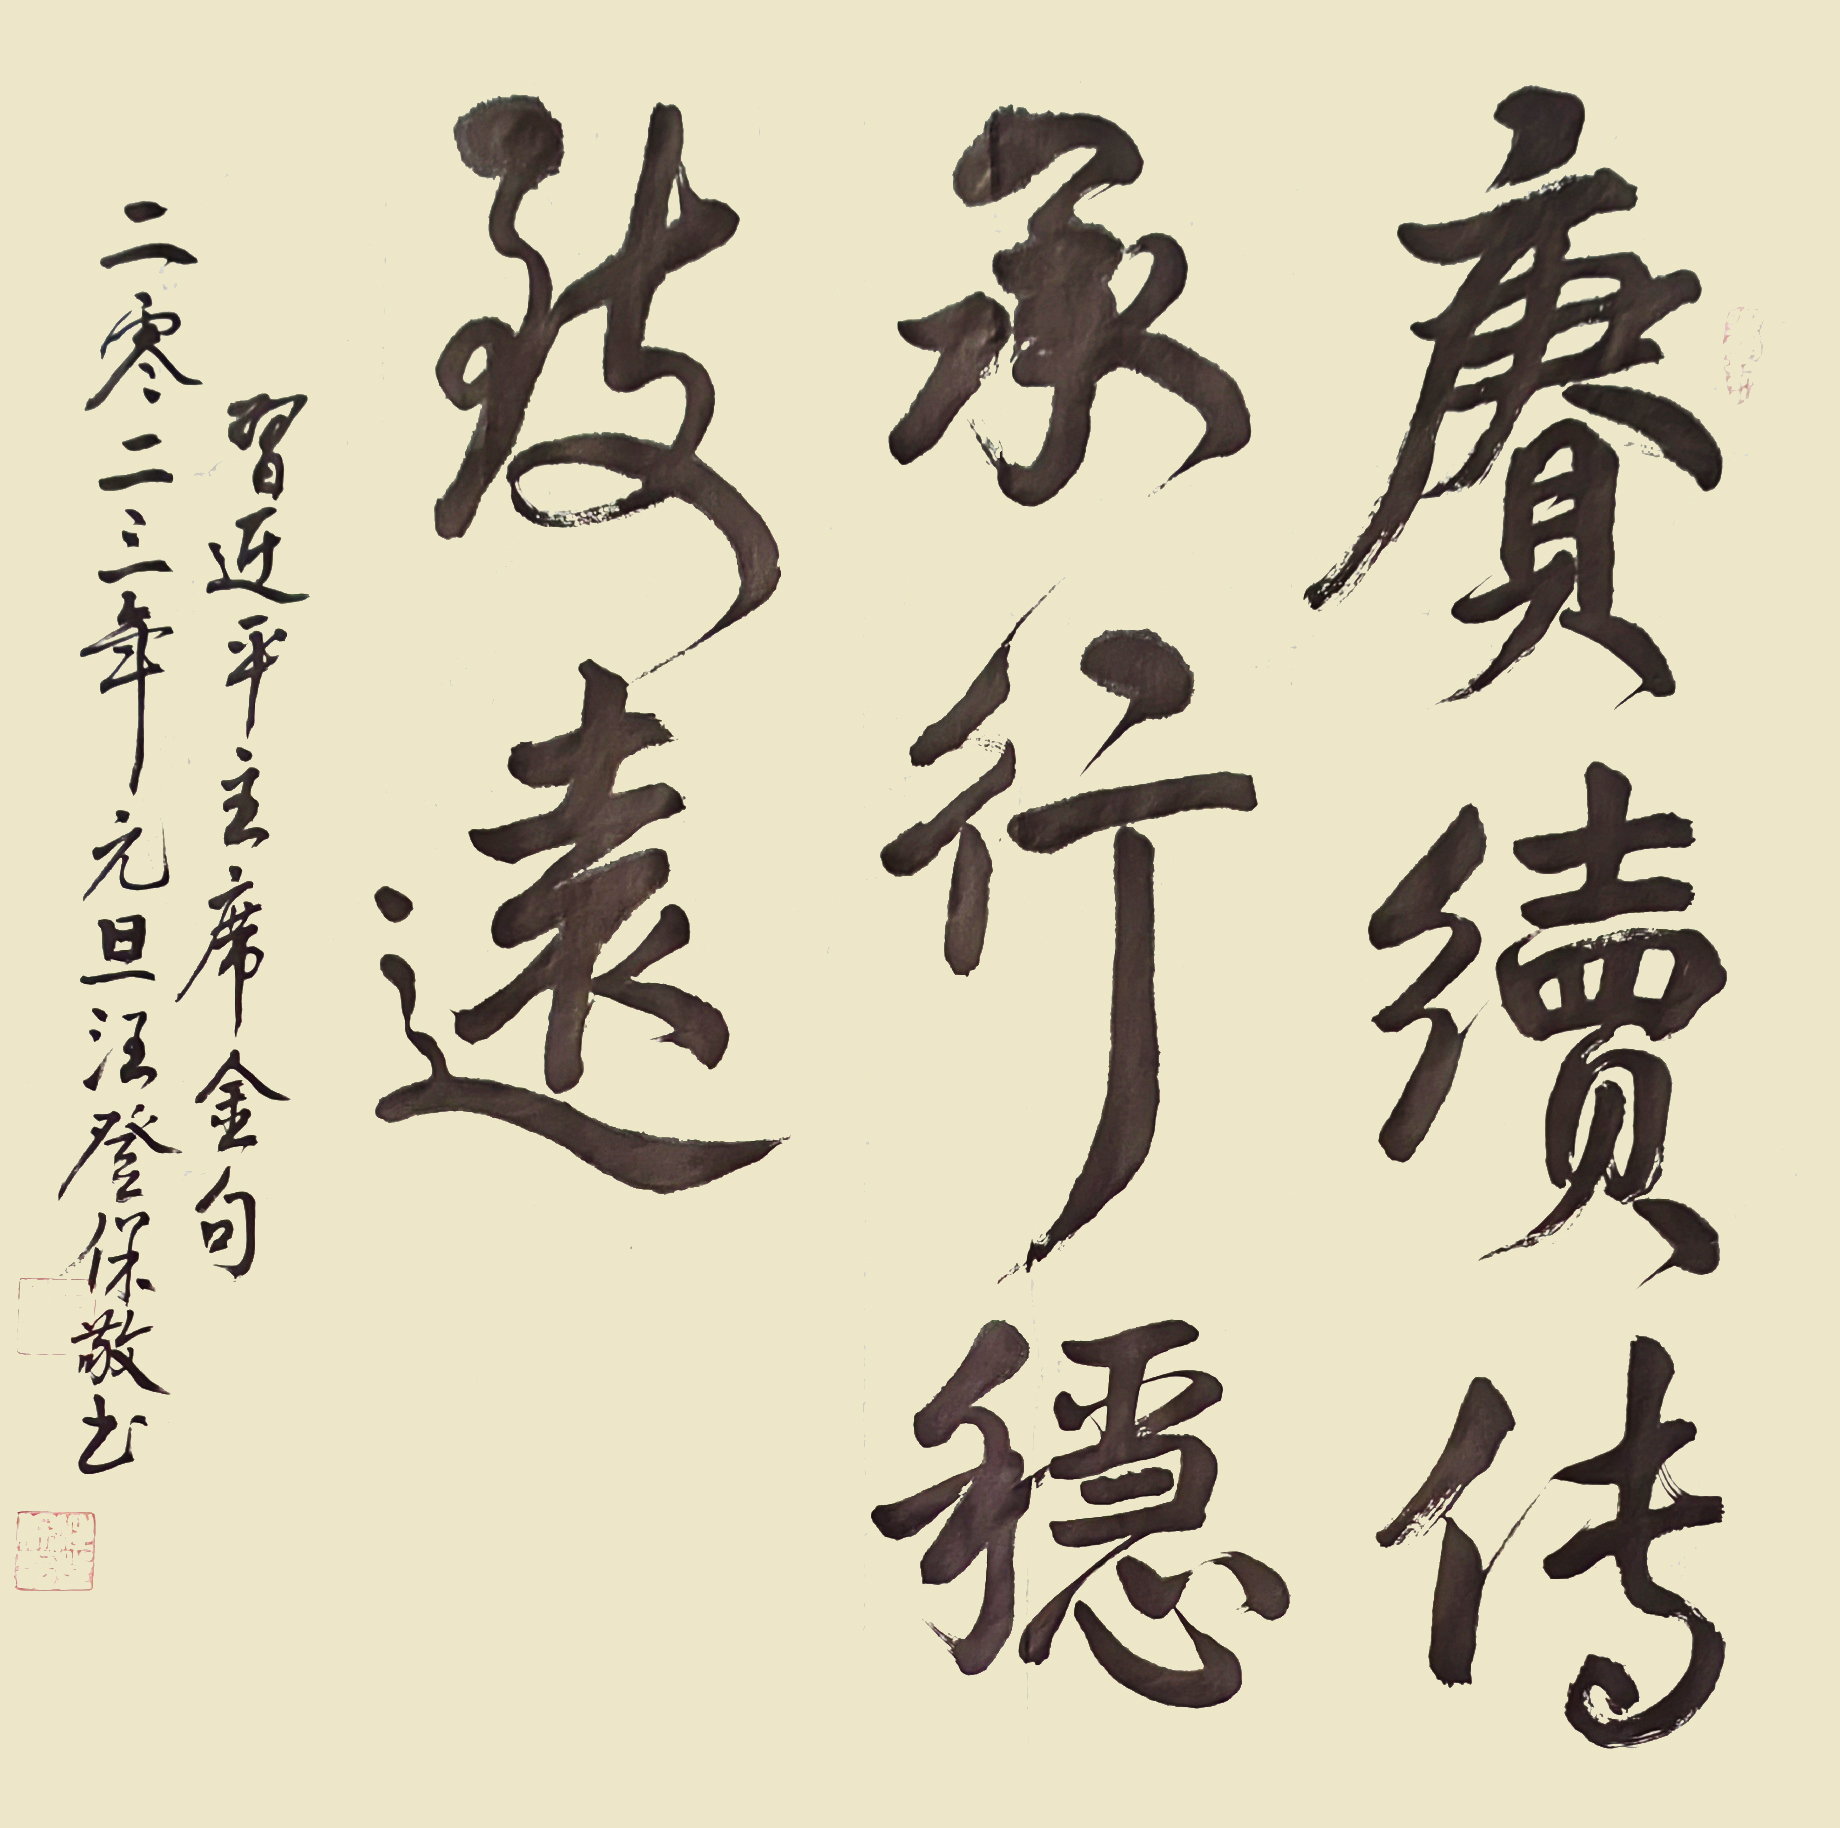 賡續傳
承行穩
致遠
習近平主席金句
二零二三年元旦汪登保敬书